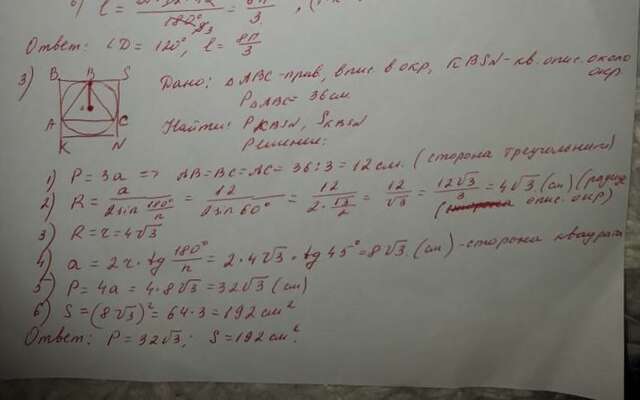 б) l =
180°
3
Ответ: ∠D = 120°, l = 8π/3
3)
B B S
A C
K N
Дано: △ABC - прав, впис. в окр, KBSN - кв. опис. около окр
P△ABC = 36 см
Найти: PKBSN, SKBSN
Решение:
1) P = 3a => AB=BC=AC= 36:3 = 12 см. (сторона треугольника)
2) R = a/(2sin 180°/n) = 12/(2sin60°) = 12/(2·√3/2) = 12/√3 = 12√3/3 = 4√3 (см) (радиус опис. окр)
3) R = r = 4√3
4) a = 2r · tg 180°/n = 2·4√3 · tg 45° = 8√3. (см) - сторона квадрата
5) P = 4a = 4·8√3 = 32√3 (см)
6) S = (8√3)² = 64·3 = 192 см²
Ответ: P = 32√3; S = 192 см².